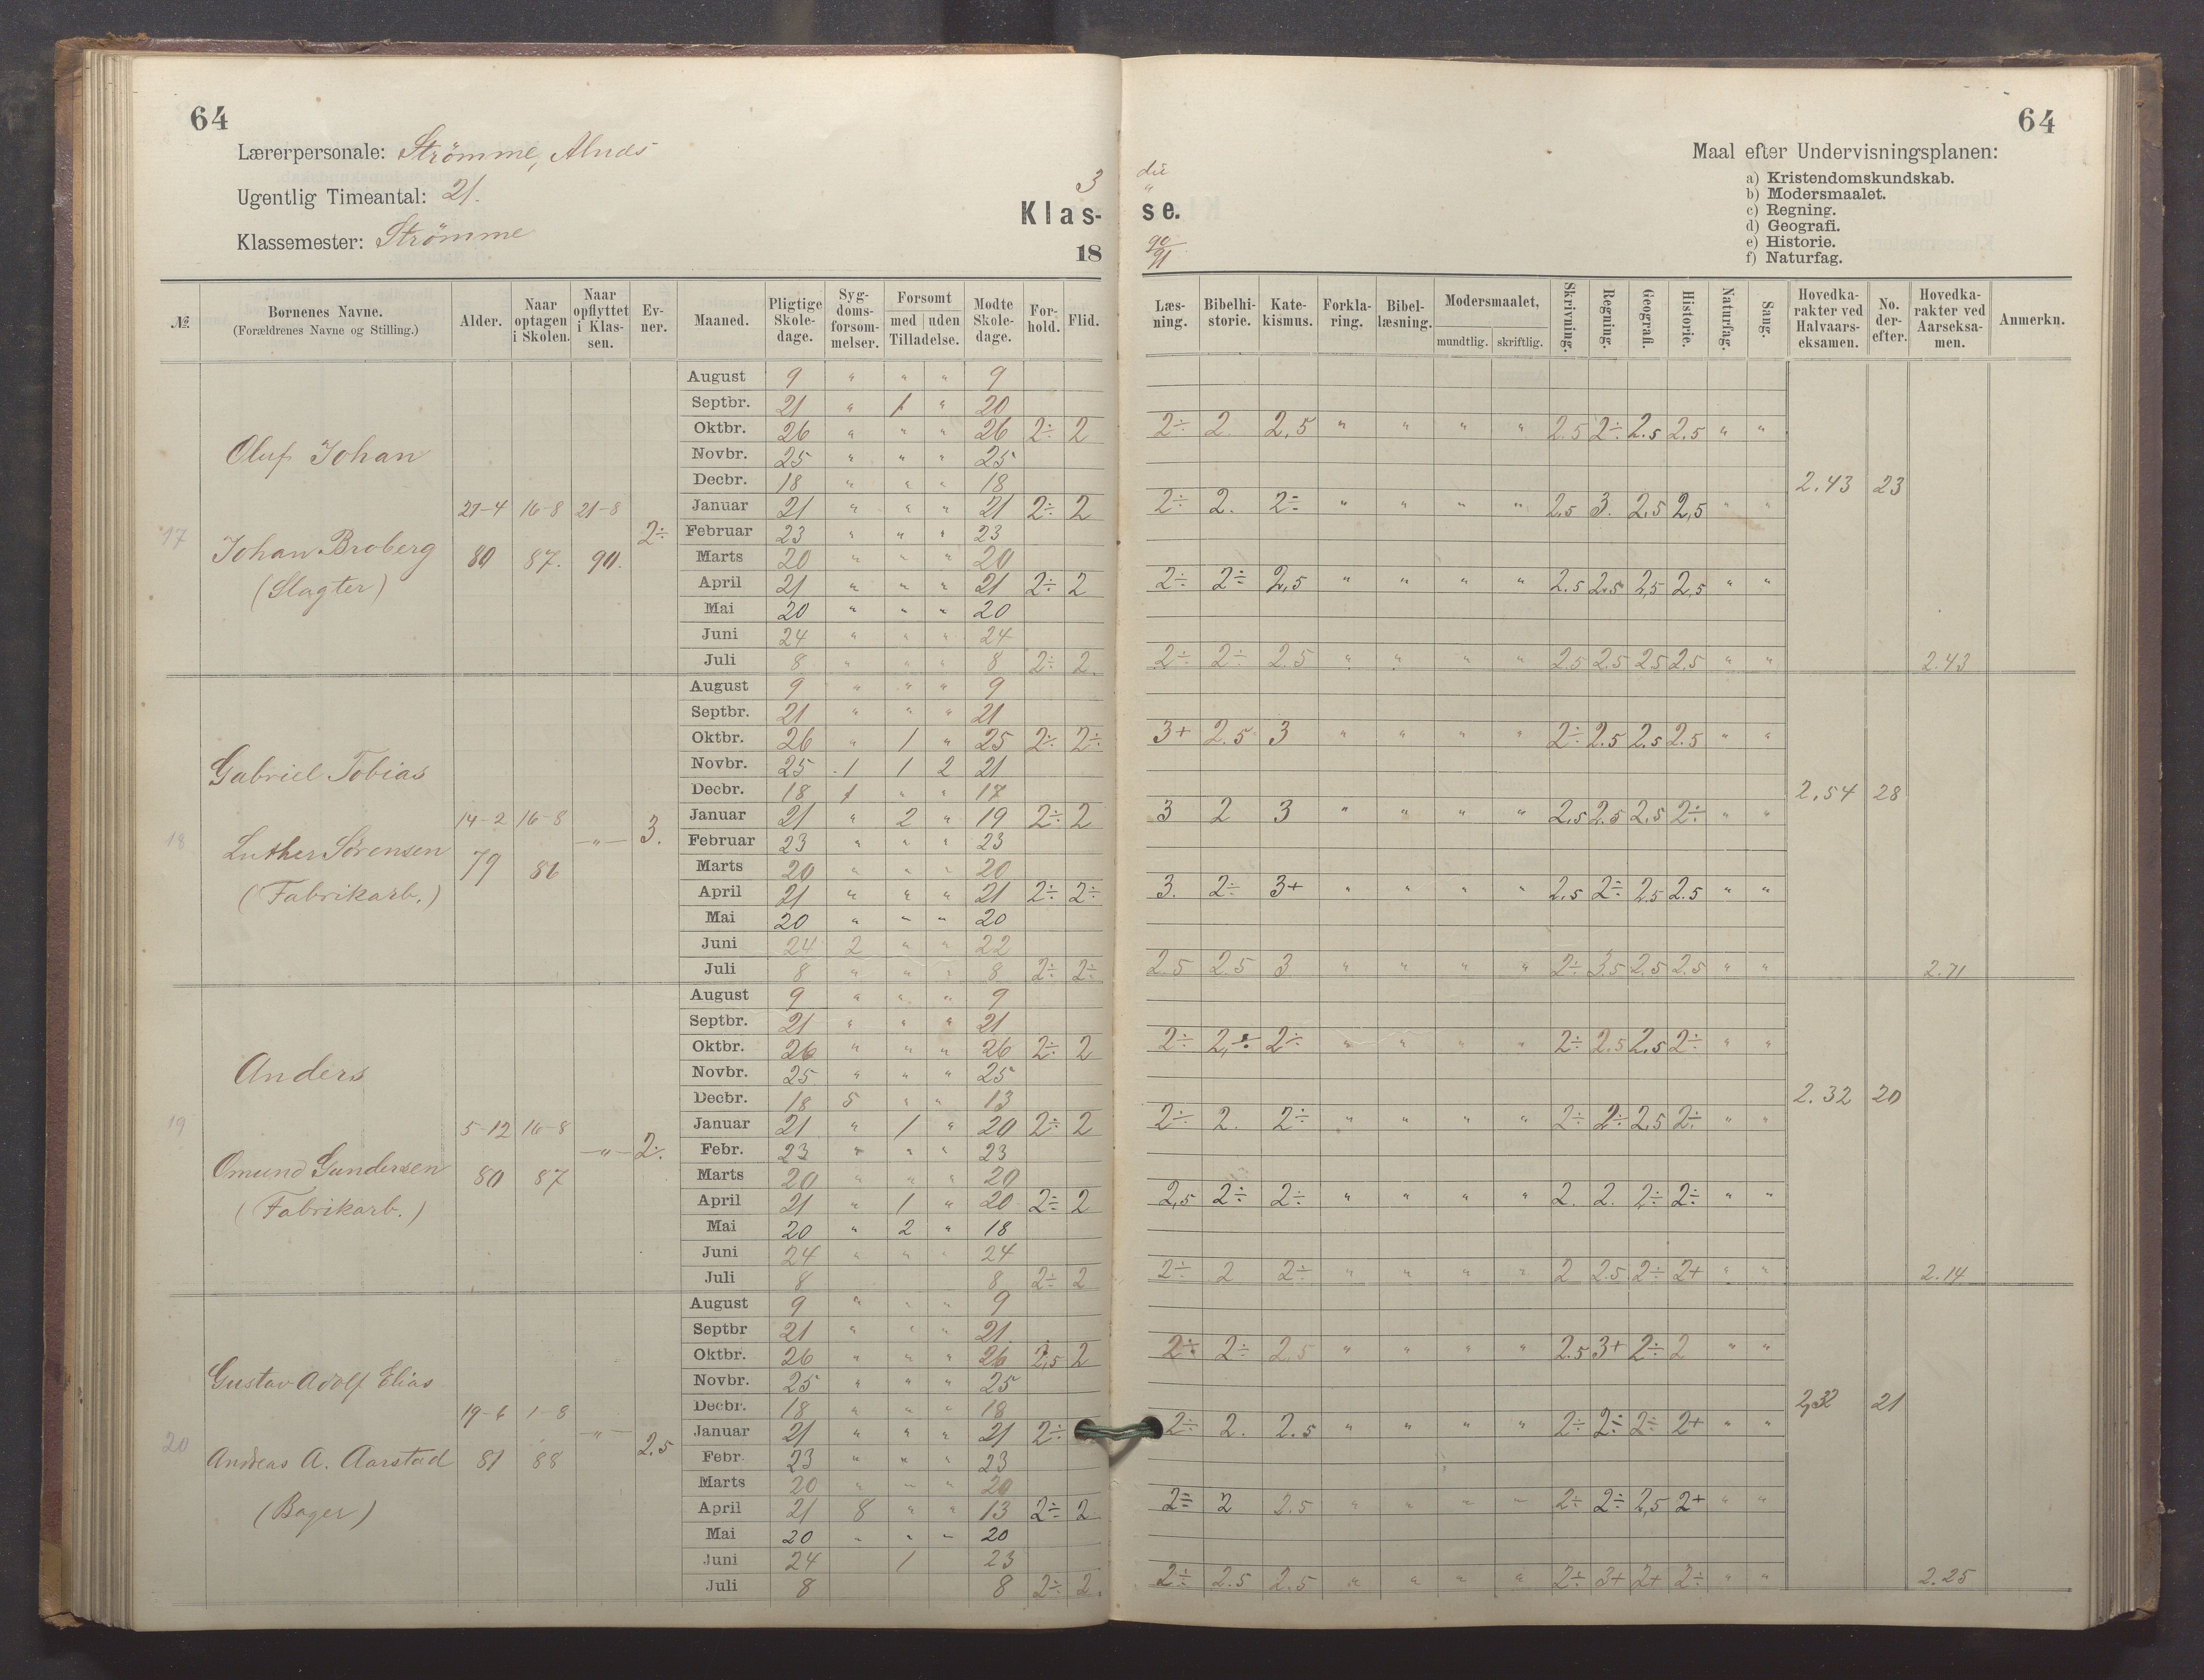 64
64
Lærerpersonale: Strömme,
Ugentlig Timeantal: 21.
Klassemester: Strömme
3 die
Klas- se.
18 90/91
Maal efter Undervisningsplanen:
a) Kristendomskundskab.
b) Modersmaalet.
c) Regning.
d) Geografi.
e) Historie.
f) Naturfag.
№ Bornenes Navne. (Forældrenes Navne og Stilling.) Alder. Naar optagen i Skolen. Naar opflyttet i Klassen. Evner. Maaned. Pligtige Skoledage. Sygdomsforsommelser. Forsomt med uden Tilladelse. Modte Skoledage. Forhold. Flid. Læsning. Bibelhistorie. Katekismus. Forklaring. Bibellæsning. Modersmaalet, mundtlig. skriftlig. Skrivning. Regning. Geografi. Historie. Naturfag. Sang. Hovedkarakter ved Halvaarseksamen. No. derefter. Hovedkarakter ved Aarseksamen. Anmerkn.
17 Oluf Johan
Johan Broberg
(Slagter)
27-4 80 16-8 87. 21-8 90. 2÷
August 9 " " " 9
Septbr. 21 " 1 " 20
Oktbr. 26 " " " 26 2÷ 2 2÷ 2. 2,5 " " " " 2.5 2÷ 2.5 2.5 " "
Novbr. 25 " " " 25
Decbr. 18 " " " 18 2.43 23
Januar 21 " " " 21 2÷ 2 2÷ 2. 2÷ " " " " 2,5 3. 2,5 2,5 " "
Februar 23 " " " 23
Marts 20 " " " 20
April 21 " " " 21 2÷ 2 2÷ 2÷ 2,5 " " " " 2.5 2.5 2,5 2,5 " "
Mai 20 " " " 20
Juni 24 " " " 24
Juli 8 " " " 8 2÷ 2. 2÷ 2÷ 2.5 " " " " 2.5 2.5 2.5 2.5 " " 2.43
18 Gabriel Tobias
Luther Sörensen
(Fabrikarb.)
14-2 79 16-8 86 -"- 3.
August 9 " " " 9
Septbr. 21 " " " 21
Oktbr. 26 " 1 " 25 2÷ 2÷ 3+ 2.5 3 " " " " 2÷ 2.5 2.5 2.5 " "
Novbr. 25 1 1 2 21
Decbr. 18 1 " " 17 2.54 28
Januar 21 " 2 " 19 2÷ 2 3 2 3 " " " " 2.5 2.5 2,5 2÷ " "
Februar 23 " " " 23
Marts 20 " " " 20
April 21 " " " 21 2÷ 2÷ 3. 2÷ 3+ " " " " 2.5 2÷ 2.5 2.5 " "
Mai 20 " " " 20
Juni 24 2 " " 22
Juli 8 " " " 8 2÷ 2÷ 2.5 2.5 3 " " " " 2÷ 3.5 2.5 2.5 " " 2.71
19 Anders
Omund Gundersen
(Fabrikarb.)
5-12 80 16-8 87 -"- 2÷
August 9 " " " 9
Septbr. 21 " " " 21
Oktbr. 26 " " " 26 2÷ 2 2÷ 2,÷ 2÷ " " " " 2÷ 2.5 2.5 2÷ " "
Novbr. 25 " " " 25
Decbr. 18 5 " " 13 2.32 20
Januar 21 " 1 " 20 2÷ 2 2÷ 2. 2÷ " " " " 2÷ 2÷ 2,5 2÷ " "
Febr. 23 " " " 23
Marts 20 " " " 20
April 21 " 1 " 20 2÷ 2 2,5 2÷ 2÷ " " " " 2. 2. 2÷ 2÷ " "
Mai 20 " 2 " 18
Juni 24 " " " 24
Juli 8 8 2÷ 2 2÷ 2 2÷ " " " " 2 2.5 2÷ 2+ " " 2.14
20 Gustav Adolf Elias
Andreas A. Aarstad
(Bager)
19-6 81 1-8 88 -"- 2.5
August 9 " " " 9
Septbr 21 " " " 21.
Oktbr. 26 " " " 26 2,5 2 2÷ 2÷ 2.5 " " " " 2.5 3+ 2÷ 2 " "
Novbr. 25 " " " 25
Decbr. 18 " " " 18 2,32 21
Januar 21 " " " 21 2÷ 2÷ 2. 2.5 " " " " 2÷ 2÷ 2÷ 2+ " "
Febr. 23 " " " 23
Marts 20 " " " 20
April 21 8 " " 13 2÷ 2 2÷ 2 2.5 " " " " 2÷ 2÷ 2,5 2+ " "
Mai 20 " " " 20
Juni 24 1 23
Juli 8 8 2÷ 2. 2÷ 2.5 2.5 " " " " 2÷ 3+ 2+ 2÷ " " 2.25